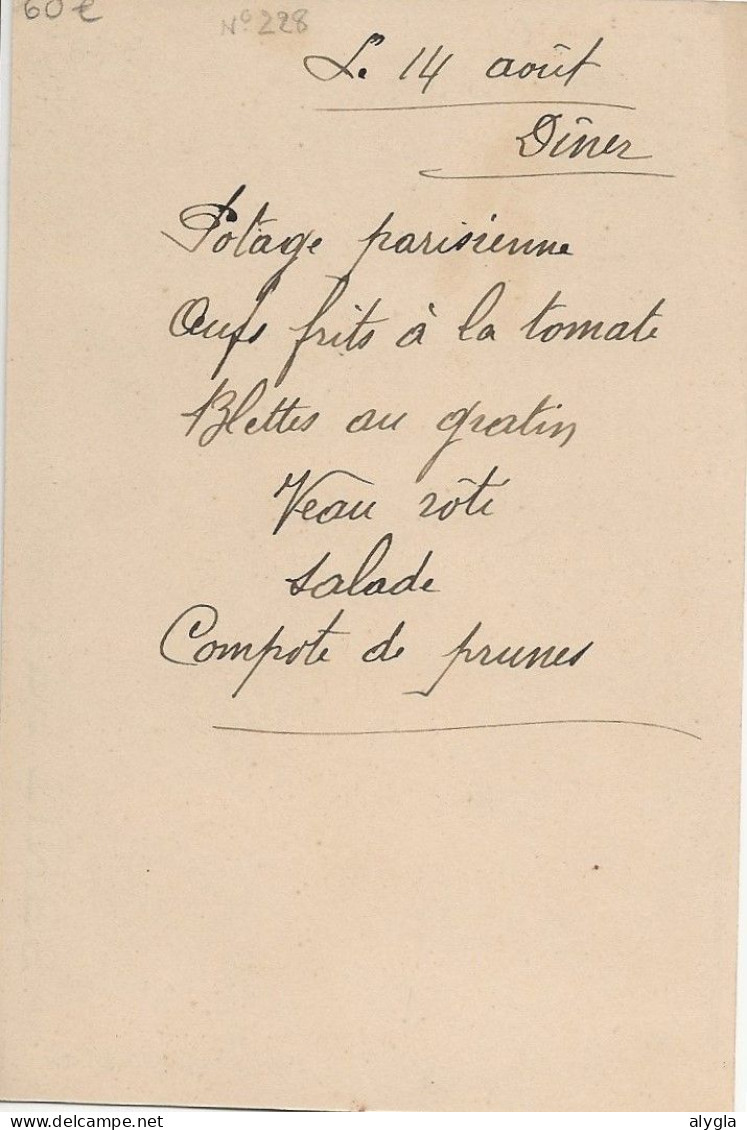 60€
N° 228
Le 14 août
Dîner
Potage parisienne
Œufs frits à la tomate
Blettes au gratin
Veau rôti
Salade
Compote de prunes
delcampe.net
alygla